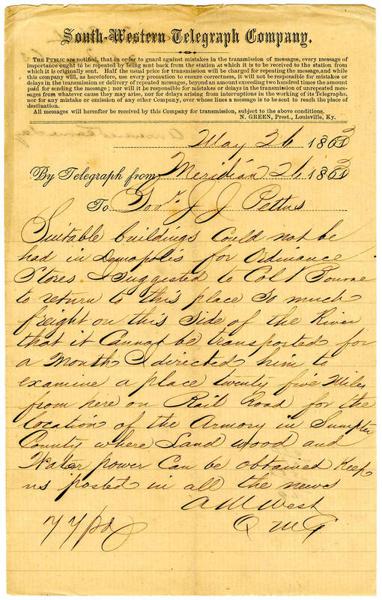 South-Western Telegraph Company.
THE PUBLIC are notified, that in order to guard against mistakes in the transmission of messages, every message of
importance ought to be repeated by being sent back from the station at which it is to be received to the station from
which it is originally sent. Half the usual price for transmission will be charged for repeating the message, and while
this company will, as heretofore, use every precaution to ensure correctness, it will not be responsible for mistakes or
delays in the transmission or delivery of repeated messages, beyond an amount exceeding two hundred times the amount
paid for sending the message; nor will it be responsible for mistakes or delays in the transmission of unrepeated messages
from whatever cause they may arise, nor for delays arising from interruptions in the working of its Telegraphs,
nor for any mistake or omission of any other Company, over whose lines a message is to be sent to reach the place of
destination.
All messages will hereafter be received by this Company for transmission, subject to the above conditions.
N. GREEN, Prest., Louisville, Ky.
May 26 1863
By Telegraph from Meridian 26 1863
To Gov. J J Pettus
Suitable buildings could not be
had in Demopolis for Ordinance
Stores I suggested to Col Bourne
to return to this place so much
freight on this side of the River
that it cannot be transported for
a Month I directed him to
examine a place twenty five Miles
from here on Rail Road for the
location of the Armory in Sumpter
County where Land wood and
Water power can be obtained Keep
us posted in all the news
A M West
Q M G
77 pd